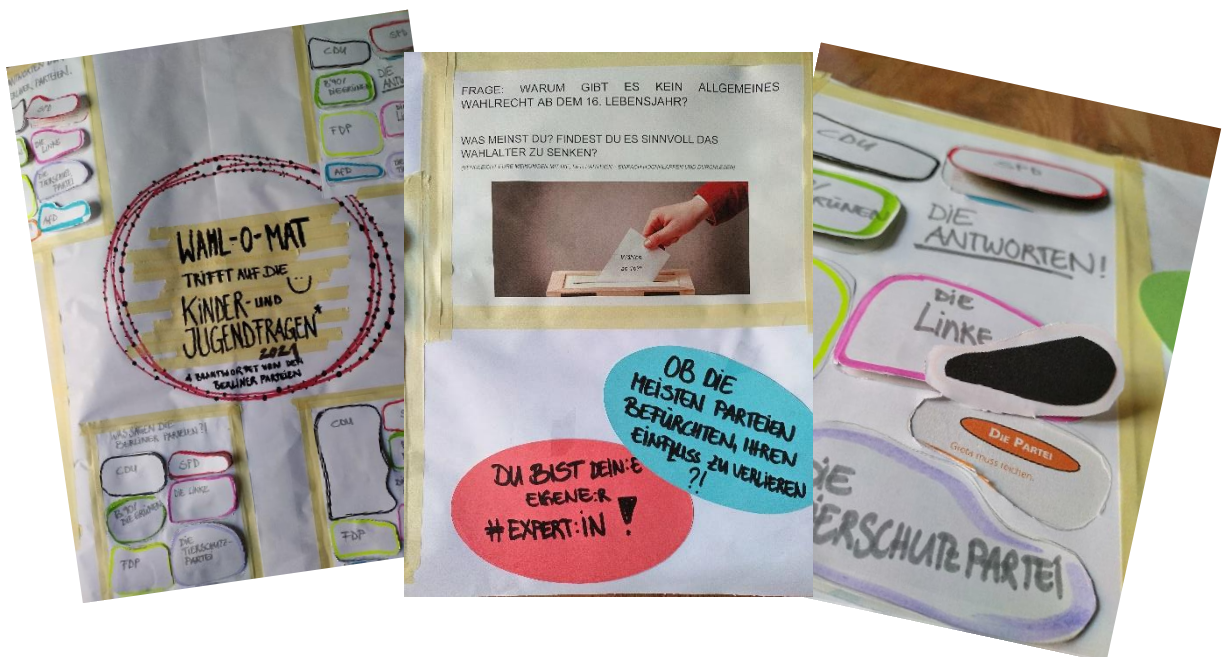 ANTWORTEN DER
BERLINER PARTEIEN!
SPD
DIE
LINKE
DIE
TIERSCHUTZ
PARTEI
AFD
CDU
SPD
B'90/
DIE GRÜNEN
DIE
FDP
AFD
WAHL-O-MAT
TRIFFT AUF DIE
KINDER- UND
JUGENDFRAGEN*
2021
BEANTWORTET VON DEN
BERLINER PARTEIEN
WAS SAGEN DIE
BERLINER PARTEIEN?!
CDU
SPD
B'90/
DIE GRÜNEN
DIE LINKE
FDP
DIE
TIERSCHUTZ-
PARTEI
CDU
FDP
FRAGE: WARUM GIBT ES KEIN ALLGEMEINES
WAHLRECHT AB DEM 16. LEBENSJAHR?
WAS MEINST DU? FINDEST DU ES SINNVOLL DAS
WAHLALTER ZU SENKEN?
OB DIE
MEISTEN PARTEIEN
BEFÜRCHTEN, IHREN
EINFLUSS ZU VERLIEREN
?!
DU BIST DEIN:E
EIGENE:R
#EXPERT:IN !
CDU
SPD
GRÜNEN
DIE
ANTWORTEN!
DIE
LINKE
DIE PARTEI
Greta muss reichen.
DIE
TIERSCHUTZPARTEI